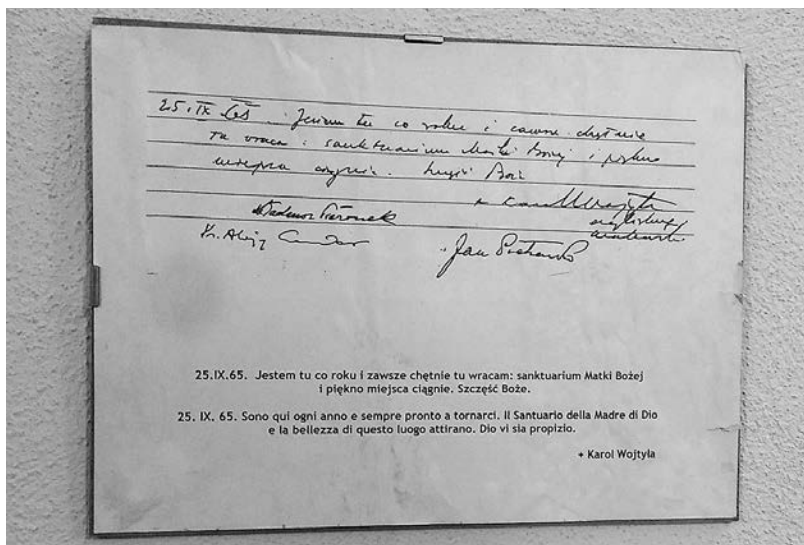 25.IX 65. Jestem tu co roku i zawsze chętnie
tu wracam: sanktuarium Matki Bożej i piękno
miejsca ciągnie. Szczęść Boże
+ Karol Wojtyła
Tadeusz Pieronek
Ks. Alojzy
Jan Pietraszko
25.IX.65. Jestem tu co roku i zawsze chętnie tu wracam: sanktuarium Matki Bożej
i piękno miejsca ciągnie. Szczęść Boże.
25. IX. 65. Sono qui ogni anno e sempre pronto a tornarci. Il Santuario della Madre di Dio
e la bellezza di questo luogo attirano. Dio vi sia propizio.
+ Karol Wojtyła